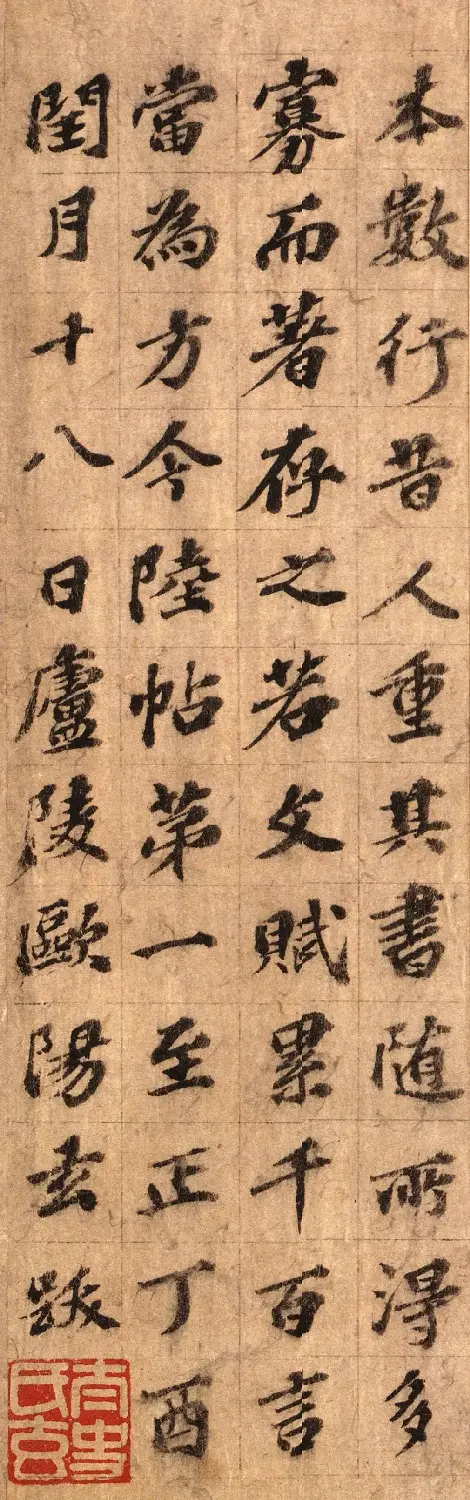 本數行昔人重其書随所淂多
寡而著存之若文賦累千百言
當為方今陸帖第一至正丁酉
閏月十八日廬陵歐陽玄跋